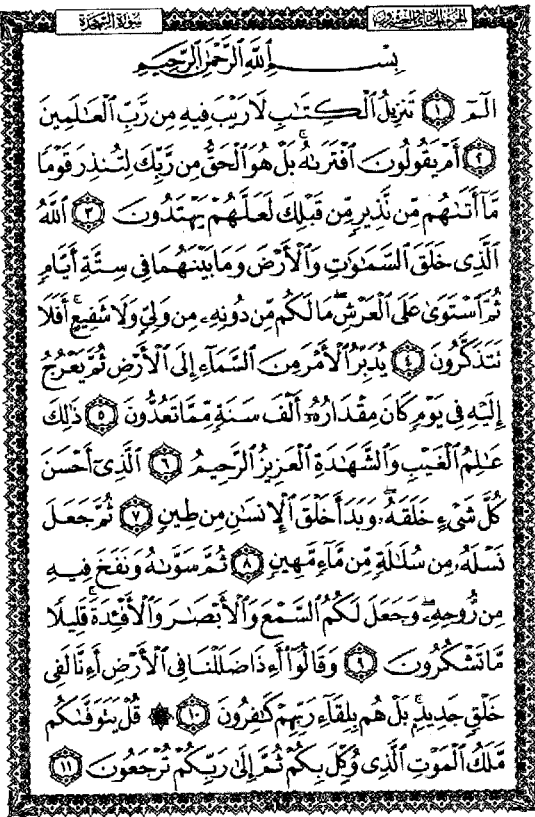 سُورَةُ السَّجْدَةِ الجزء الحادي والعشرون
بِسْمِ ٱللَّهِ ٱلرَّحْمَٰنِ ٱلرَّحِيمِ
الٓمٓ ١ تَنزِيلُ ٱلْكِتَٰبِ لَا رَيْبَ فِيهِ مِن رَّبِّ ٱلْعَٰلَمِينَ
٢ أَمْ يَقُولُونَ ٱفْتَرَىٰهُ ۚ بَلْ هُوَ ٱلْحَقُّ مِن رَّبِّكَ لِتُنذِرَ قَوْمًا
مَّآ أَتَىٰهُم مِّن نَّذِيرٍ مِّن قَبْلِكَ لَعَلَّهُمْ يَهْتَدُونَ ٣ ٱللَّهُ
ٱلَّذِى خَلَقَ ٱلسَّمَٰوَٰتِ وَٱلْأَرْضَ وَمَا بَيْنَهُمَا فِى سِتَّةِ أَيَّامٍ
ثُمَّ ٱسْتَوَىٰ عَلَى ٱلْعَرْشِ ۖ مَا لَكُم مِّن دُونِهِۦ مِن وَلِىٍّ وَلَا شَفِيعٍ ۚ أَفَلَا
تَتَذَكَّرُونَ ٤ يُدَبِّرُ ٱلْأَمْرَ مِنَ ٱلسَّمَآءِ إِلَى ٱلْأَرْضِ ثُمَّ يَعْرُجُ
إِلَيْهِ فِى يَوْمٍ كَانَ مِقْدَارُهُۥٓ أَلْفَ سَنَةٍ مِّمَّا تَعُدُّونَ ٥ ذَٰلِكَ
عَٰلِمُ ٱلْغَيْبِ وَٱلشَّهَٰدَةِ ٱلْعَزِيزُ ٱلرَّحِيمُ ٦ ٱلَّذِىٓ أَحْسَنَ
كُلَّ شَىْءٍ خَلَقَهُۥ ۖ وَبَدَأَ خَلْقَ ٱلْإِنسَٰنِ مِن طِينٍ ٧ ثُمَّ جَعَلَ
نَسْلَهُۥ مِن سُلَٰلَةٍ مِّن مَّآءٍ مَّهِينٍ ٨ ثُمَّ سَوَّىٰهُ وَنَفَخَ فِيهِ
مِن رُّوحِهِۦ ۖ وَجَعَلَ لَكُمُ ٱلسَّمْعَ وَٱلْأَبْصَٰرَ وَٱلْأَفْـِٔدَةَ ۚ قَلِيلًا
مَّا تَشْكُرُونَ ٩ وَقَالُوٓا۟ أَءِذَا ضَلَلْنَا فِى ٱلْأَرْضِ أَءِنَّا لَفِى
خَلْقٍ جَدِيدٍۭ ۚ بَلْ هُم بِلِقَآءِ رَبِّهِمْ كَٰفِرُونَ ١٠ ۞ قُلْ يَتَوَفَّىٰكُم
مَّلَكُ ٱلْمَوْتِ ٱلَّذِى وُكِّلَ بِكُمْ ثُمَّ إِلَىٰ رَبِّكُمْ تُرْجَعُونَ ١١